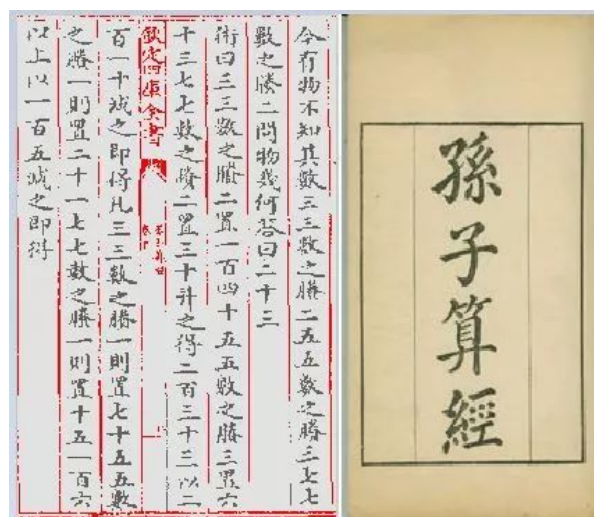 今有物不知其數三三數之賸二五五數之賸三七七
數之賸二問物幾何答曰二十三
術曰三三數之賸二置一百四十五五數之賸三置六
十三七七數之賸二置三十并之得二百三十三以二
欽定四庫全書
百一十減之即得凡三三數之賸一則置七十五五數
之賸一則置二十一七七數之賸一則置十五一百六
以上以一百五減之即得
孫子算經